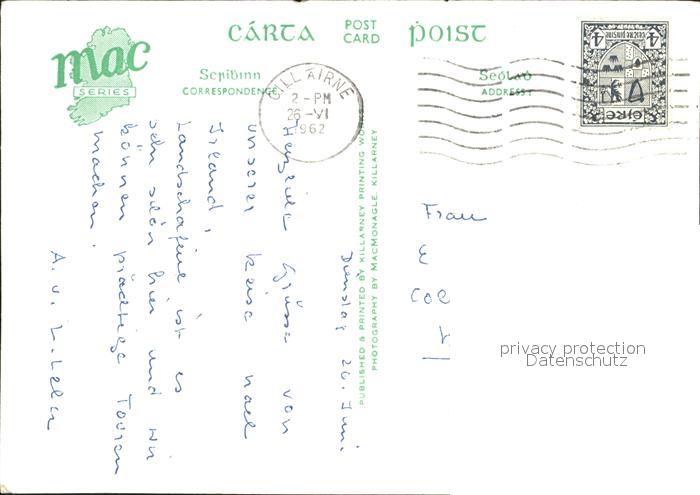 mac
SERIES
CÁRTA POIST
POST
CARD
Scríbinn
CORRESPONDENCE
Seoladh
ADDRESS
CILL AIRNE
2 - PM
26 - VI
1962
EIRE
4
4
Dienstag 26. Juni
Herzliche Grüsse von
unserer Reise nach
Irland,
Landschaftlich ist es
sehr schön hier und wir
können prächtige Touren
machen.
A. v.
PUBLISHED & PRINTED BY KILLARNEY PRINTING WORKS
PHOTOGRAPHY BY MACMONAGLE, KILLARNEY
Frau
privacy protection
Datenschutz